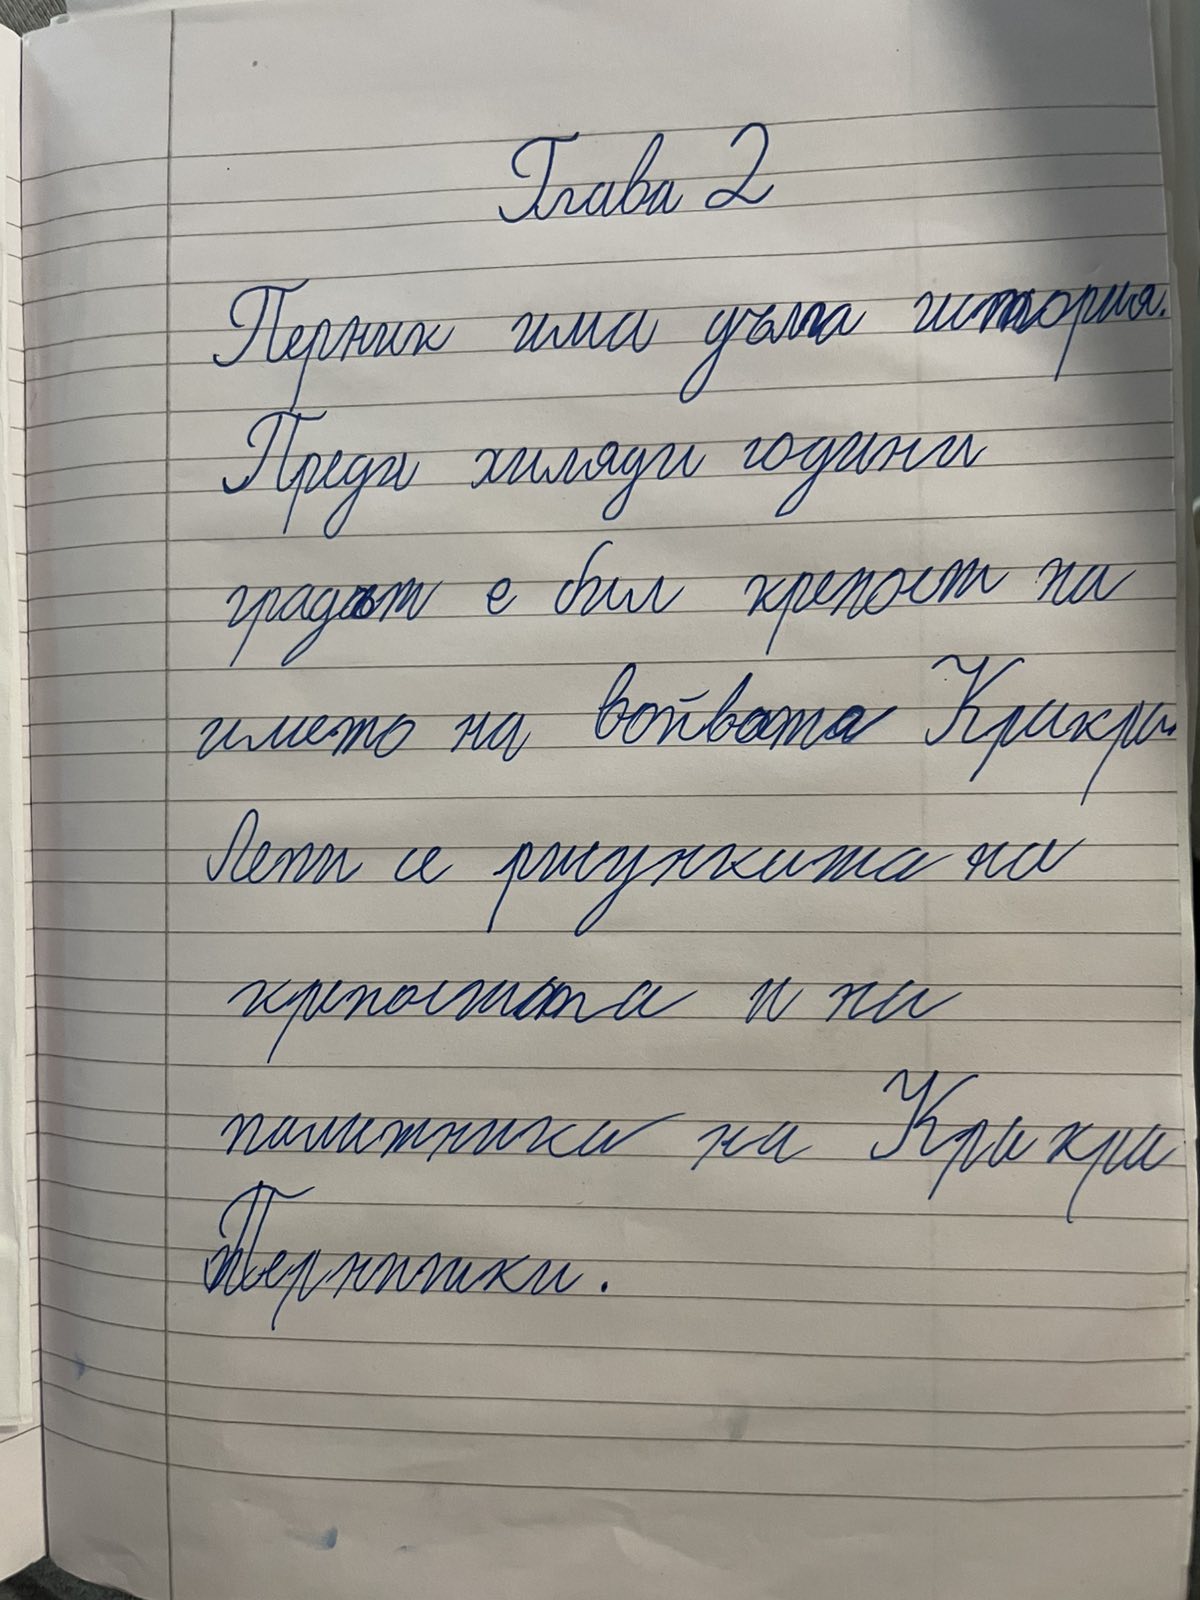 Глава 2
Перник има дълга история.
Преди хиляди години
градът е бил крепост на
името на войвата Крикри.
Лепи се рисунката на
крепостта и на
паметника на Кракра
Пернишки.